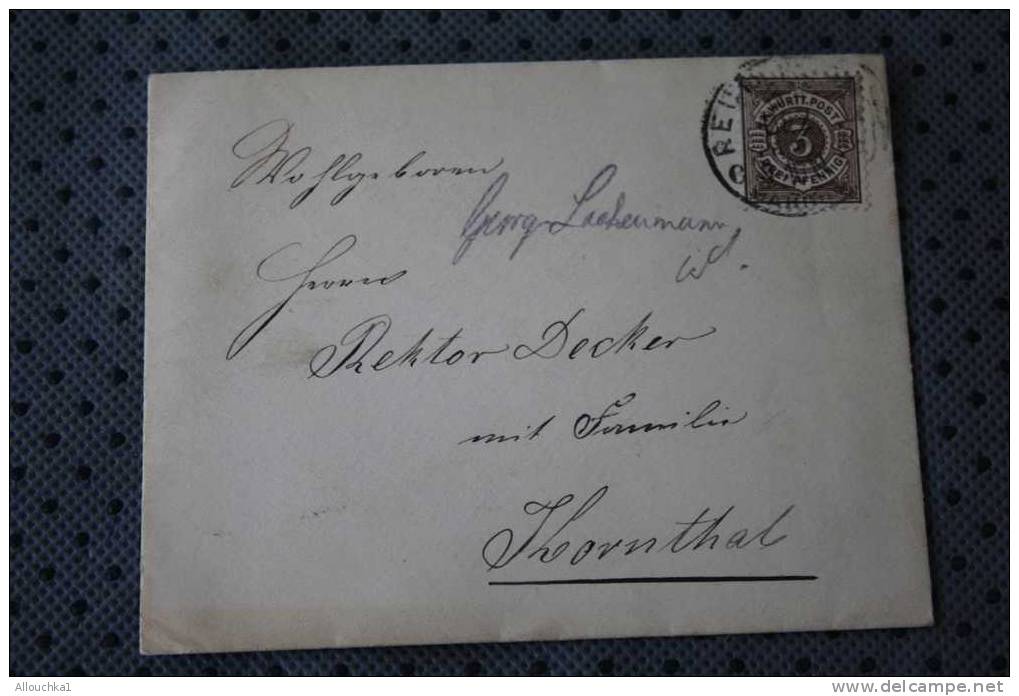 K. WÜRTT. POST
3
DREI PFENNIG
Wohlgeboren
Georg Lachenmann
Herrn
Rektor Decker
mit Familie
Kornthal
Allouchka1
www.delcampe.net